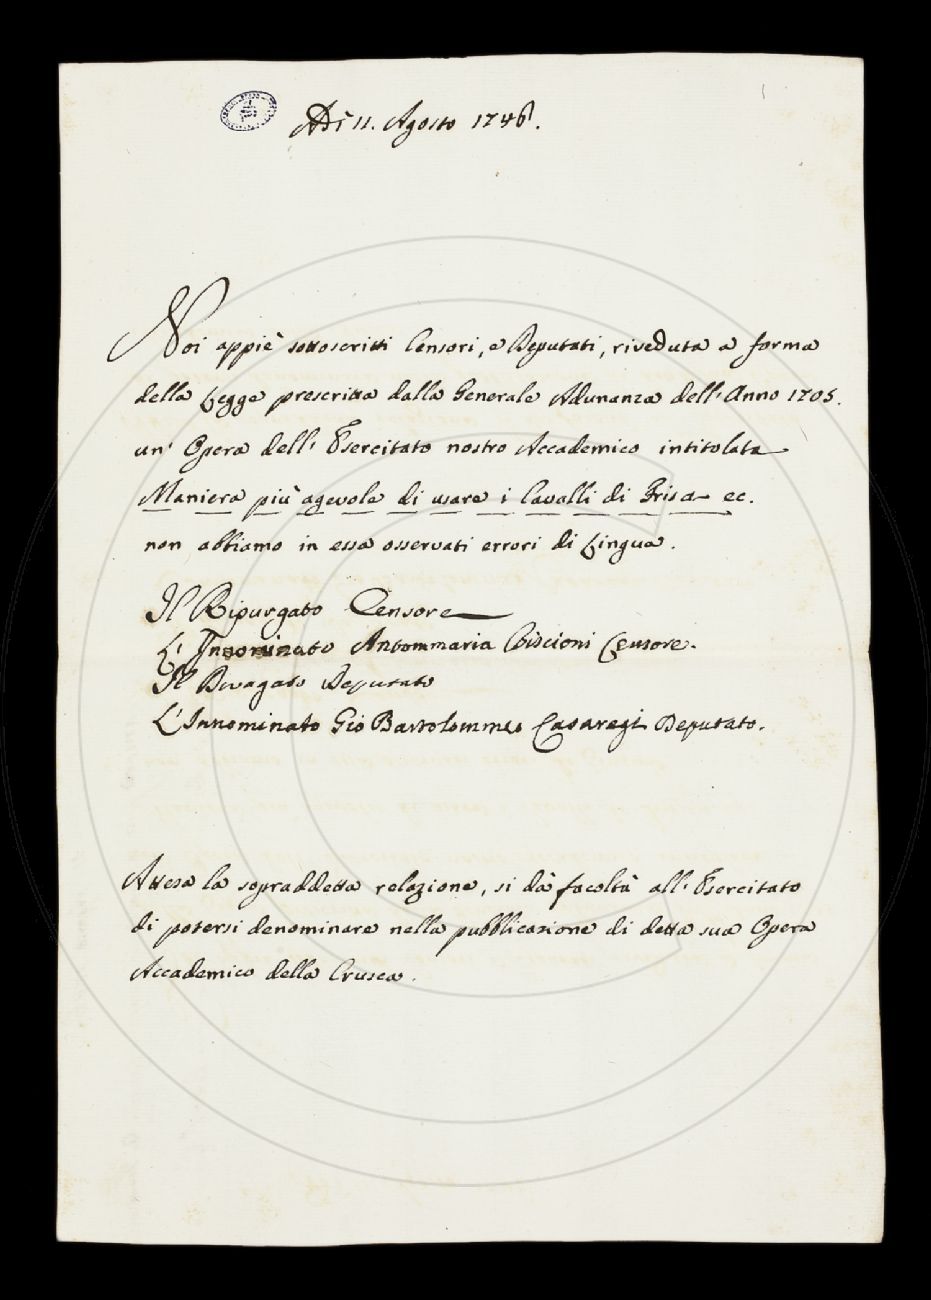 Adì 11. Agosto 1746.
Noi appiè sottoscritti Censori, e Deputati, riveduta a forma
della Legge prescritta dalla Generale Adunanza dell' Anno 1705.
un' Opera dell' Esercitato nostro Accademico intitolata
Maniera più agevole di usare i Cavalli di Frisa ec.
non abbiamo in essa osservati errori di Lingua.
Il Ripurgato Censore
L' Innominato Antommaria Biscioni Censore.
Il Divagato Deputato
L'Innominato Gio Bartolommeo Casaregi Deputato.
Attesa la sopraddetta relazione, si dà facoltà all' Esercitato
di potersi denominare nella pubblicazione di detta sua Opera
Accademico della Crusca.